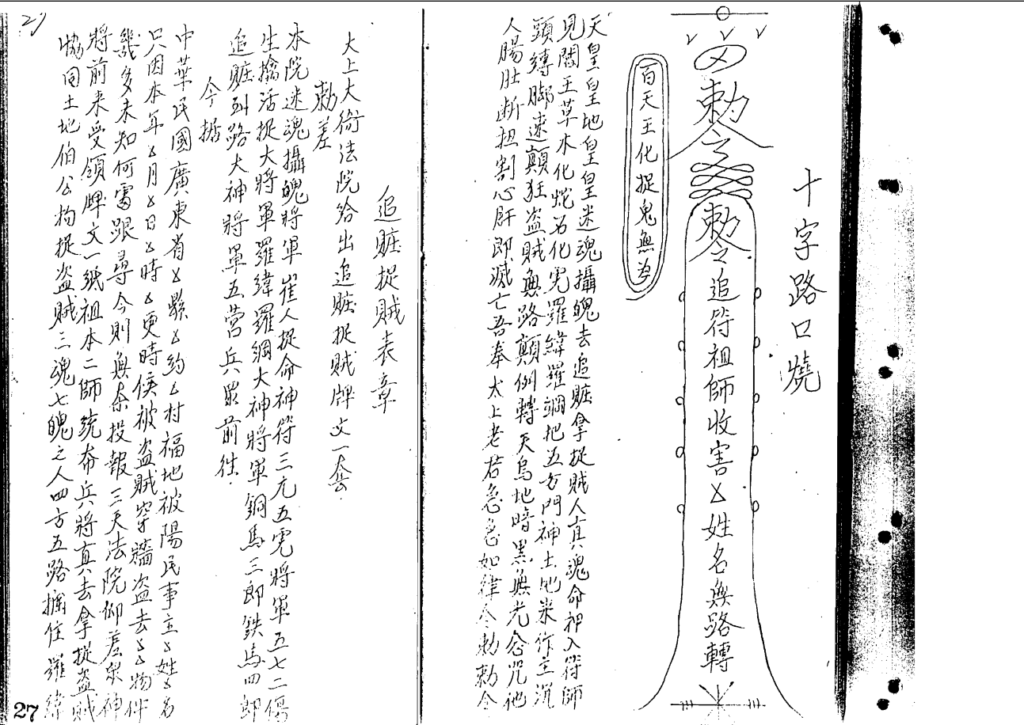 十字路口燒
勅令
勅令
追符祖師收害ㄨ姓名無路轉
百天王化捉鬼無為
天皇皇地皇皇迷魂攝魄去追賍拿捉賊人真魂命押入符師
見閻王草木化蛇石化羅緯羅綱把五方門神土地來作主沉
頭縛脚速顛狂盜賊無路顛倒轉天烏地暗黑無光念咒祂
人腸肚斷扭割心肝即滅亡吾奉太上老君急急如律令勅勅令
追賍捉賊表章
大上大倚法院給出追賍捉賊牌文一套
勅差
本院迷魂攝魄將軍崔人捉命神符三元五將軍五七二傷
生擒活捉大將軍羅緯羅綱大神將軍銅馬三郎鉄馬四郎
追賍到路大神將軍五營兵眾前往
今據
中華民國廣東省ㄨ縣ㄨ約ㄨ村福地被陽民事主ㄨ姓ㄨ名
只因本年ㄨ月ㄨ日ㄨ時ㄨ更時候被盜賊穿牆盜去ㄨㄨ物件
幾多未知何處跟尋今則無奈投報三天法院仰差眾神
將前來受領牌文一紙祖本二師統布兵將真去拿捉盜賊
協同土地伯公拘捉盜賊三魂七魄之人四方五路攔住羅緯
27